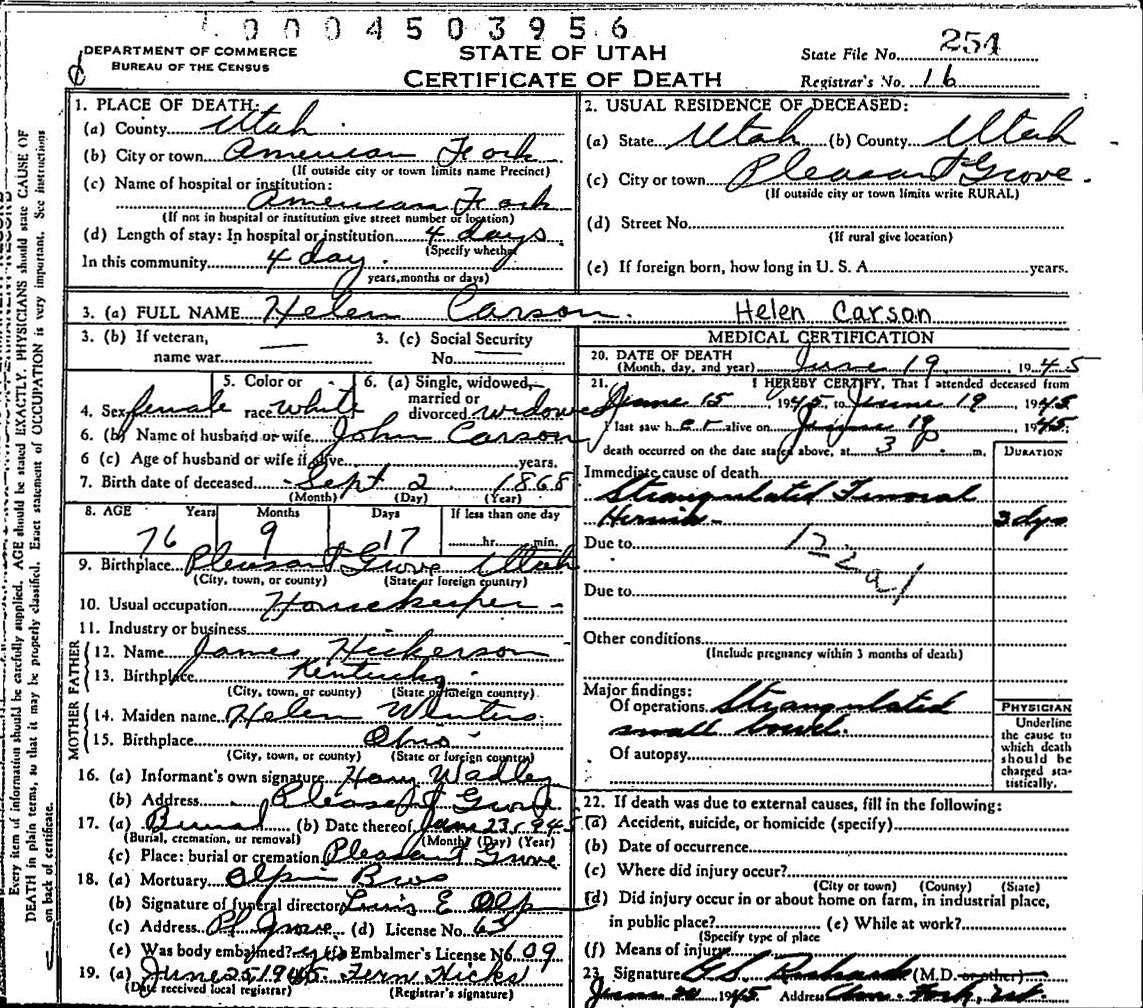 0004503956
DEPARTMENT OF COMMERCE
BUREAU OF THE CENSUS
STATE OF UTAH
CERTIFICATE OF DEATH
State File No. 254
Registrar's No. 16
1. PLACE OF DEATH:
(a) County Utah
(b) City or town American Fork
(If outside city or town limits name Precinct)
(c) Name of hospital or institution:
American Fork
(If not in hospital or institution give street number or location)
(d) Length of stay: In hospital or institution 4 days
(Specify whether
In this community 4 day.
years, months or days)
2. USUAL RESIDENCE OF DECEASED:
(a) State Utah (b) County Utah
(c) City or town Pleasant Grove
(If outside city or town limits write RURAL)
(d) Street No.
(If rural give location)
(e) If foreign born, how long in U. S. A. years.
3. (a) FULL NAME Helen Carson. Helen Carson
3. (b) If veteran,
name war —
3. (c) Social Security
No. —
4. Sex female
5. Color or
race white
6. (a) Single, widowed,
married or
divorced widowed
6. (b) Name of husband or wife John Carson
6 (c) Age of husband or wife if alive years.
7. Birth date of deceased Sept 2 1868
(Month) (Day) (Year)
8. AGE Years Months Days If less than one day
76 9 17 hr. min.
9. Birthplace Pleasant Grove Utah
(City, town, or county) (State or foreign country)
10. Usual occupation Housekeeper
11. Industry or business
FATHER
12. Name James Hickerson
13. Birthplace Kentucky
(City, town, or county) (State or foreign country)
MOTHER
14. Maiden name Helen Winters
15. Birthplace Ohio
(City, town, or county) (State or foreign country)
16. (a) Informant's own signature Harry Wadley
(b) Address Pleasant Grove
17. (a) Burial (b) Date thereof June 23, 1945
(Burial, cremation, or removal) (Month) (Day) (Year)
(c) Place: burial or cremation Pleasant Grove
18. (a) Mortuary Olpin Bros
(b) Signature of funeral director E Olp
(c) Address Pl Grove (d) License No. 63
(e) Was body embalmed? yes (f) Embalmer's License No 609
19. (a) June 25, 1945 Fern Hicks
(Date received local registrar) (Registrar's signature)
MEDICAL CERTIFICATION
20. DATE OF DEATH
(Month, day, and year) June 19, 1945
21. I HEREBY CERTIFY, That I attended deceased from
June 15, 1945, to June 19 1945
I last saw her alive on June 19, 1945.
death occurred on the date stated above, at 3 p. m.
DURATION
Immediate cause of death
Strangulated Femoral
Hernia 3 dys
Due to 122a1
Due to
Other conditions
(Include pregnancy within 3 months of death)
Major findings:
Of operations Strangulated
small bowel.
Of autopsy
PHYSICIAN
Underline
the cause to
which death
should be
charged sta-
tistically.
22. If death was due to external causes, fill in the following:
(a) Accident, suicide, or homicide (specify)
(b) Date of occurrence
(c) Where did injury occur?
(City or town) (County) (State)
(d) Did injury occur in or about home on farm, in industrial place,
in public place? (e) While at work?
(Specify type of place
(f) Means of injury
23. Signature (M.D. or other)
June 20 1945 Address Am. Fork, Ut.
Every item of information should be carefully supplied. AGE should be stated EXACTLY. PHYSICIANS should state CAUSE OF
DEATH in plain terms, so that it may be properly classified. Exact statement of OCCUPATION is very important. See instructions
on back of certificate.